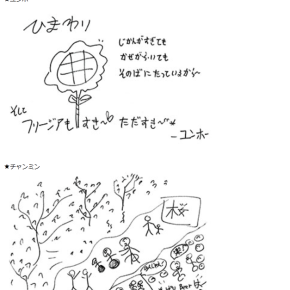 ひまわり
じかんがすぎても
かぜがふいても
そのばにたっているから〜
そして
フリージアも すき〜 ただすき〜
－ユンホ－
★チャンミン
桜